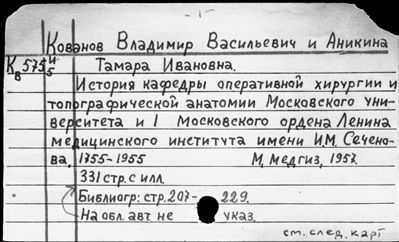 - 1 -
Кованов Владимир Васильевич и Аникина
К 575 и Тамара Ивановна.
в 5
История кафедры оперативной хирургии и
топографической анатомии Московского уни-
верситета и I Московского ордена Ленина
медицинского института имени И.М. Сечено-
ва, 1755-1955 М, Медгиз, 1957.
331 стр. с илл.
Библиогр: стр. 207-229.
На обл. авт. не указ.
см. след. карт